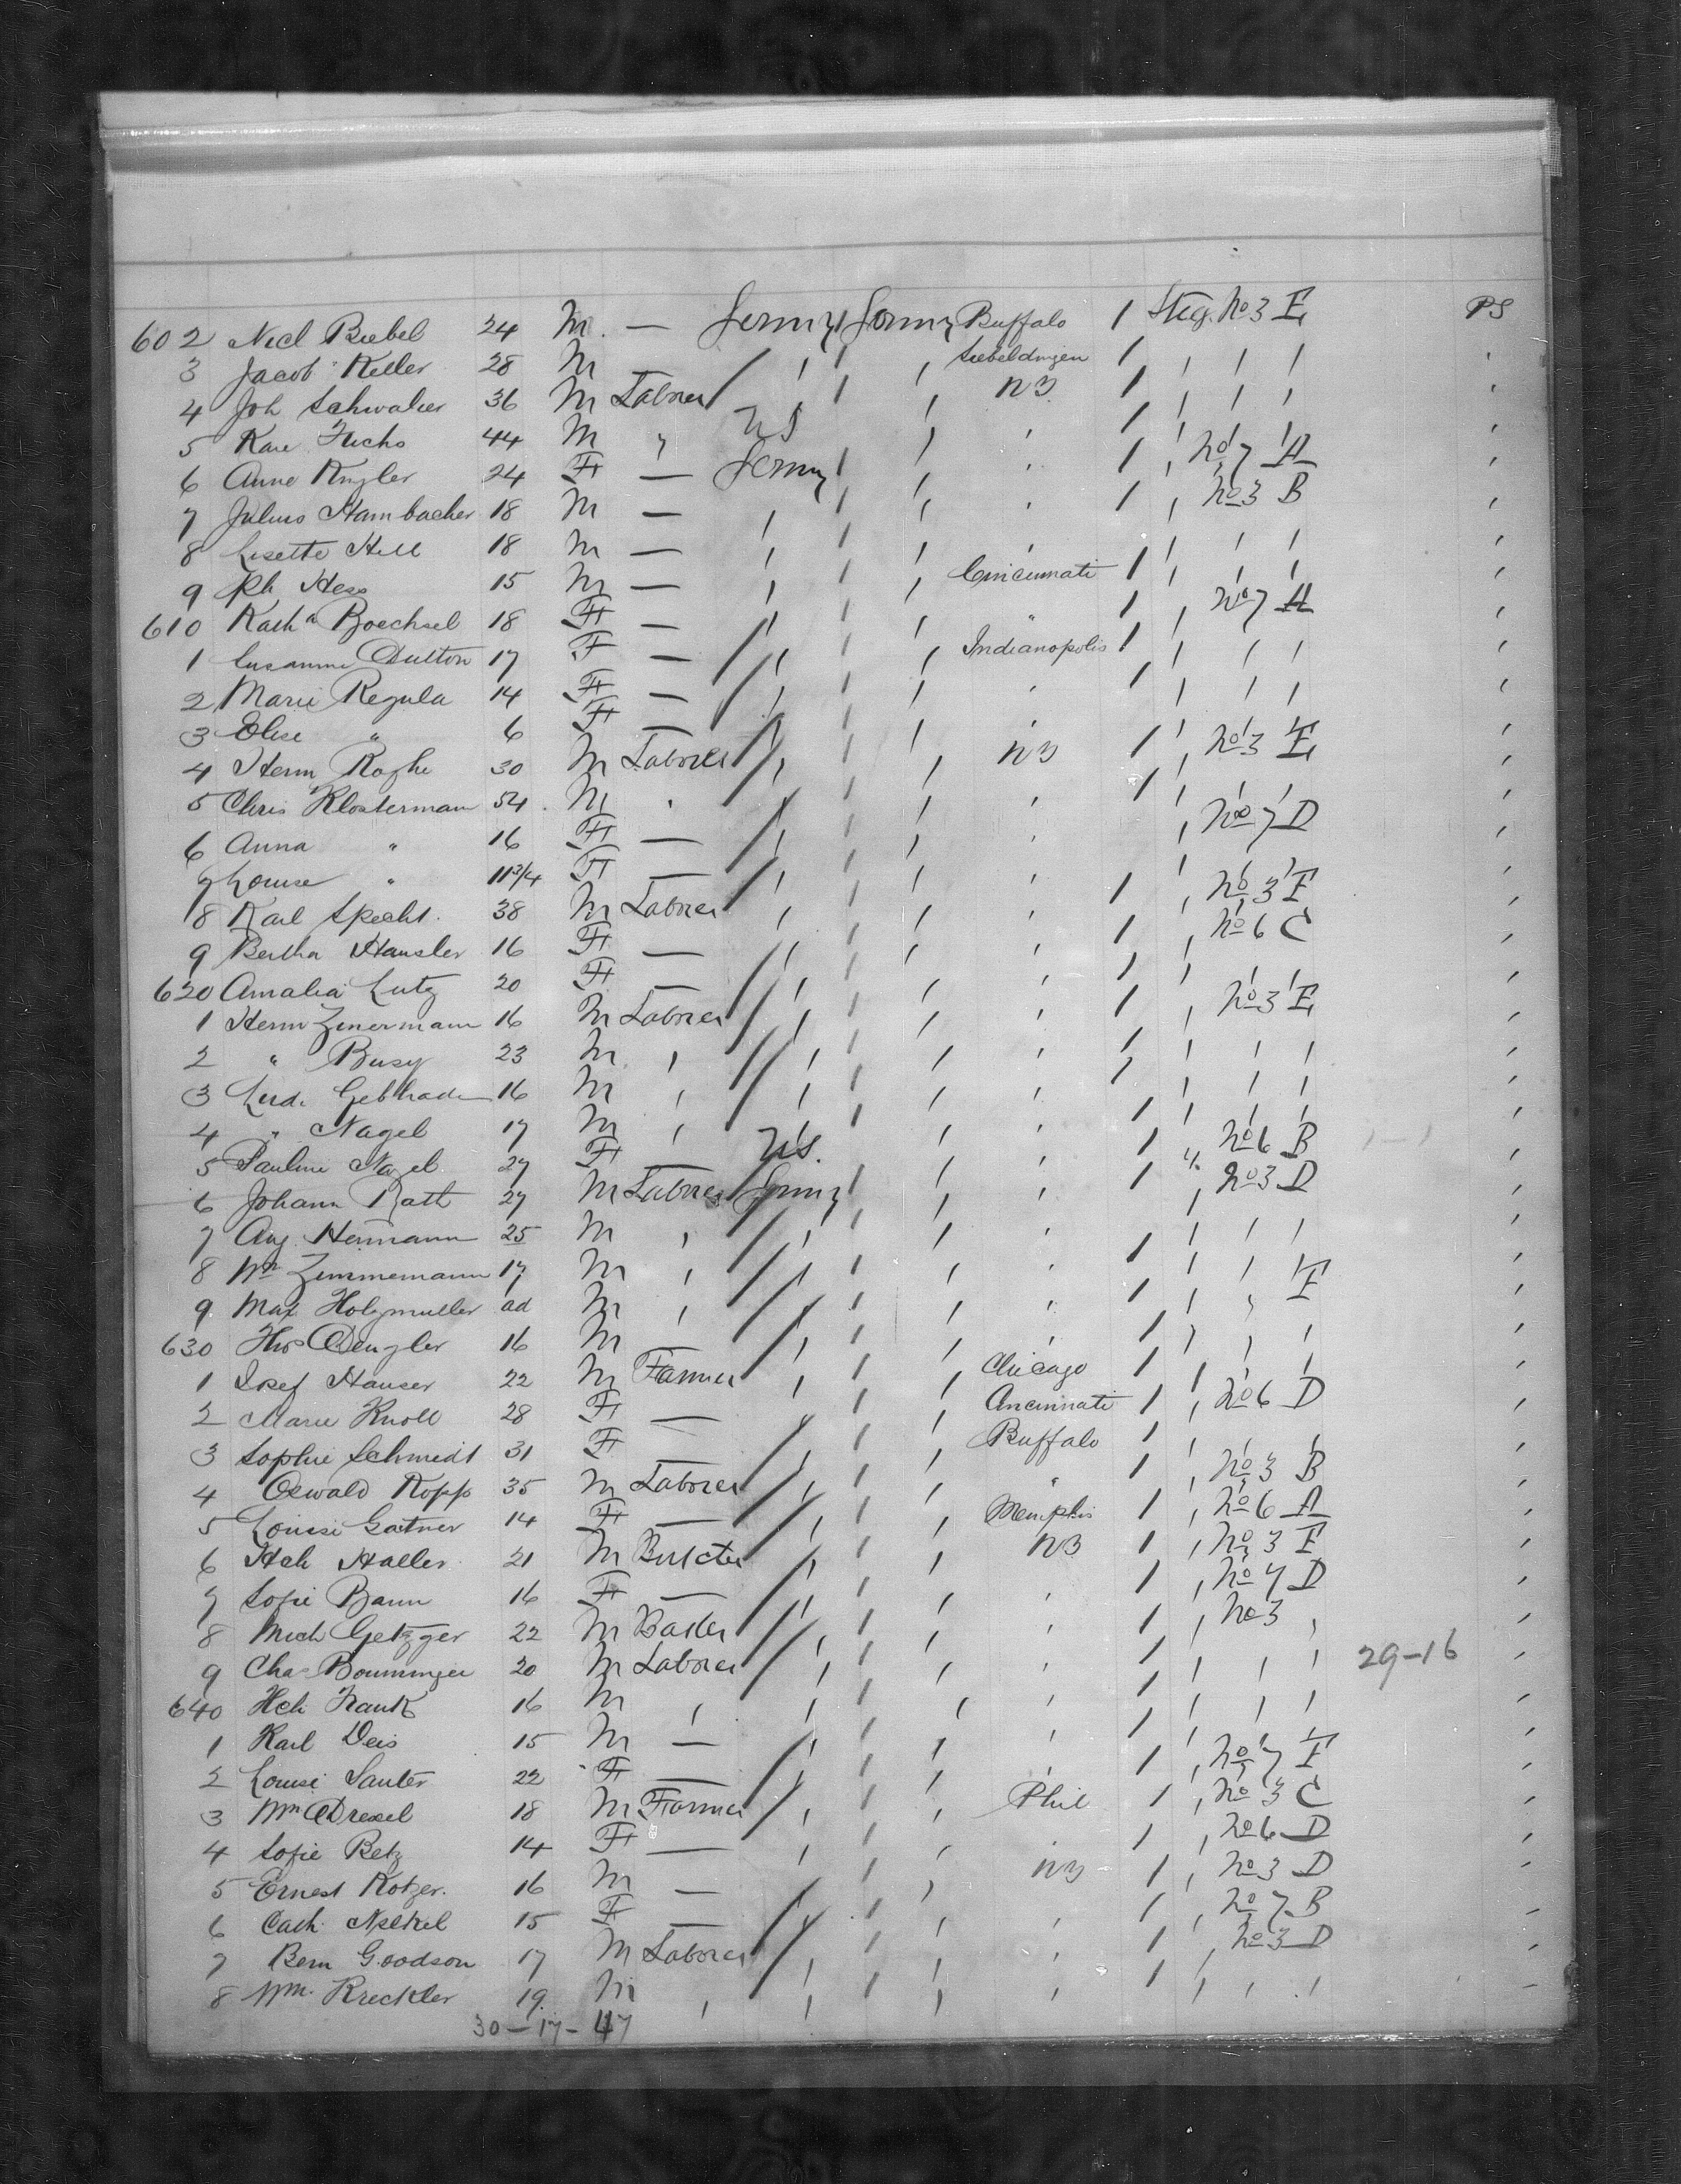 602 Nicl Biebel 24 M. — Germy Germy Buffalo 1 Steg. No 3 E PS
3 Jacob Keller 28 M / ' ' ' Siebeldingen 1 ' ' '
4 Joh Schwalier 36 M Laborer / ' ' ' NY 1 ' ' '
5 Karl Fuchs 44 M " US ' ' 1 ' ' '
6 Anne Kugler 24 F — Germy ' ' ' 1 ' No 7 A
7 Julius Hambacher 18 M — ' ' ' ' 1 ' No 3 B
8 Lisette Hill 18 M — ' ' ' ' ' ' '
9 Ph Hess 15 M — ' ' ' Cincinnati 1 ' ' '
610 Kath a Boechsel 18 F — ' ' ' " 1 ' No 7 A
1 Susanne Dutton 17 F — / ' ' ' Indianopolis 1 ' ' '
2 Marie Regula 14 F — / ' ' ' ' 1 ' ' '
3 Elise " 6 F — / ' ' ' ' '
4 Herm Roghe 30 M Laborer / ' ' ' NY 1 ' No 3 E
5 Chris Klosterman 54 M " ' ' ' 1 ' ' '
6 Anna " 16 F — / ' ' ' ' ' No 7 D
7 Louise " 11 3/4 F — / ' ' ' '
8 Karl Specht. 38 M Laborer / ' ' ' ' 1 ' No 3 E
9 Bertha Hausler 16 F — ' ' ' ' 1 ' No 6 C
620 Amalia Lutz 20 F — / ' ' ' ' 1 ' ' '
1 Herm Zimermann 16 M Laborer / ' ' ' ' 1 ' No 3 E
2 " Busy 23 M ' / ' ' ' ' 1 ' ' '
3 Lud. Gebhard 16 M ' / ' ' ' ' 1 ' ' '
4 " Nagel 17 M ' ' ' ' 1 ' ' '
5 Pauline Nagel 27 F — US. ' ' ' 1 " No 6 B
6 Johann Rath 27 M Laborer / Germy ' ' ' 1 ' No 3 D
7 Aug. Hermann 25 M ' / ' ' ' ' ' ' '
8 Wm Zimmemann 17 M ' / ' ' ' ' 1 ' ' '
9 Max Holzmuller ad M ' / ' ' ' ' 1 ' ' E
630 Thos Dengler 16 M / ' ' ' ' 1 ' ' '
1 Josef Hauser 22 M Farmer ' ' ' Chicago 1 ' ' '
2 Marie Knoll 28 F — ' ' ' Cincinnati 1 ' No 6 D
3 Sophie Schmidt 31 F / ' ' ' Buffalo 1 ' ' '
4 Oswald Kopp 35 M Laborer / ' ' ' " 1 ' No 3 B
5 Louise Gatner 14 F — / ' ' ' Memphis 1 ' No 6 A
6 Hch Haller 21 M Butcher / ' ' ' NY 1 ' No 3 E
7 Sofie Baum 16 F — / ' ' ' ' 1 ' No 7 D
8 Mich Getzger 22 M Baker / ' ' ' ' 1 ' No 3 '
9 Chas 20 M Laborer / ' ' ' ' 1 ' ' ' 29-16
640 Hch Frank 16 M ' ' ' ' ' 1 ' ' '
1 Karl Deis 15 M — / ' ' ' ' 1 ' ' '
2 Louise Sauter 22 F — / ' ' ' ' 1 ' No 7 E
3 Wm Drexel 18 M Farmer / ' ' ' Phil 1 ' No 3 C
4 Sofie Betz 14 F — ' ' ' 1 ' No 6 D
5 Ernest Kotzer. 16 M — / ' ' ' NY 1 ' No 3 D
6 Cath. 15 F — / ' ' ' ' 1 ' No 7 B
7 Bern Goodson 17 M Laborer / ' ' ' ' 1 ' No 3 D
8 Wm. Kreckler 19. M ' / ' ' ' ' 1 ' ' '
30-17-47